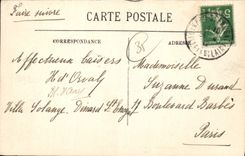 Faire suivre
CARTE POSTALE
CORRESPONDANCE
Affectueux baisers
Villa Solange, Dinard St Enogat
Mademoiselle
Suzanne Durand
Boulevard Barbès
Paris